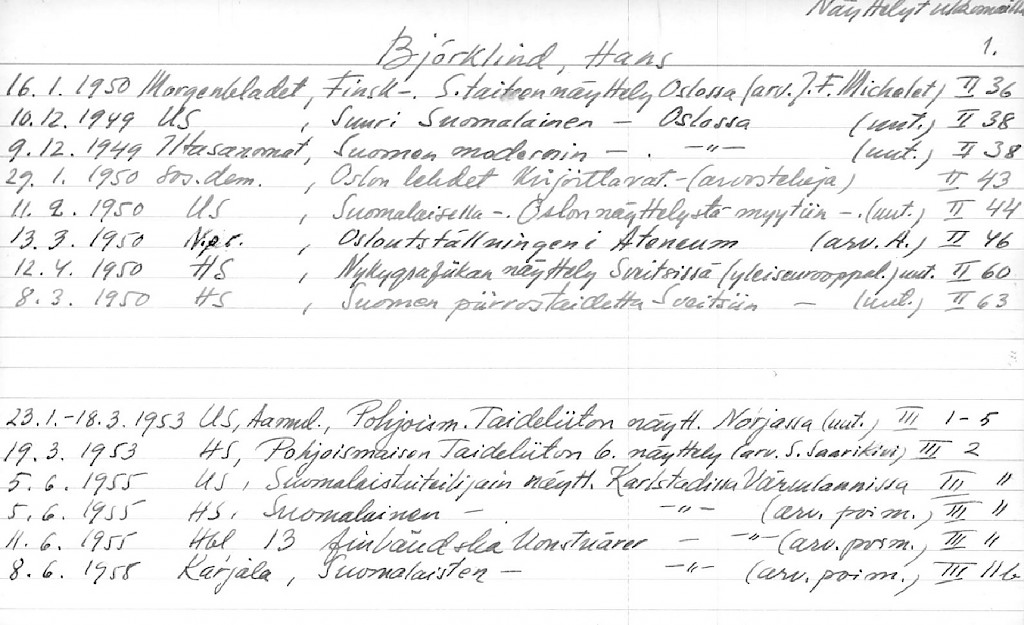 Näyttelyt ulkomailla
1.
Björklind, Hans
16.1.1950 Morgenbladet, Finsk-. S. taiteen näyttely Oslossa (arv. J.F. Michelet) II 36
10.12.1949 US , Suuri Suomalainen - Oslossa (uut.) II 38
9.12.1949 Iltasanomat, Suomen modernin - . -"- (uut.) II 38
29.1.1950 Sos.dem. , Oslon lehdet kirjoittavat.- (arvosteluja) II 43
11.2.1950 US , Suomalaisella -. Oslon näyttelystä myytiin -. (uut.) II 44
13.3.1950 N.pr. , Osloutställningen i Ateneum (arv. A.) II 46
12.4.1950 HS , Nykygrafiikan näyttely Sveitsissä (yleiseurooppal.) uut. II 60
8.3.1950 HS , Suomen piirrostaidetta Sveitsiin - (uut.) II 63
23.1.-18.3.1953 US, Aamul., Pohjoism. Taideliiton näytt. Norjassa (uut.) III 1-5
19.3.1953 HS, Pohjoismaisen Taideliiton 6. näyttely (arv. S. Saarikivi) III 2
5.6.1955 US, Suomalaistaiteilijain näytt. Karlstadissa Värmlannissa III "
5.6.1955 HS. Suomalainen - -"- (arv. poim.) III "
11.6.1955 Hbl 13 finländska konstnärer - -"- (arv. poim.) III "
8.6.1958 Karjala, Suomalaisten - -"- (arv. poim.) III 116